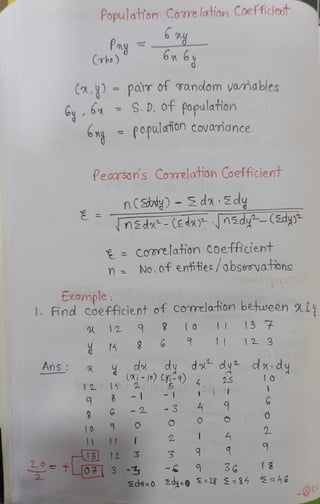 Population Correlation Coefficient
ρxy = σxy / σx σy
(rho)
(x,y) = pair of random variables
σy, σx = S.D. of population
σxy = population covariance
Pearson's Correlation Coefficient
r = n(Σdxdy) - Σdx·Σdy / √nΣdx² - (Σdx)² · √nΣdy² - (Σdy)²
r = correlation coefficient
n = No. of entities/observations
Example:
1. Find coefficient of correlation between x & y
x 12 9 8 10 11 13 7
y 14 8 6 9 11 12 3
Ans: x y dx dy dx² dy² dx·dy
(xi-10) (yi-9)
12 14 2 5 4 25 10
9 8 -1 -1 1 1 1
8 6 -2 -3 4 9 6
10 9 0 0 0 0 0
11 11 1 2 1 4 2
13 12 3 3 9 9 9
20/2 = + 07 3 -3 -6 9 36 18
Σdx=0 Σdy=0 Σ=28 Σ=84 Σ=46